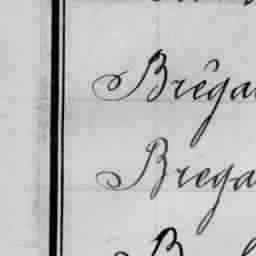 Brêga
Brega
B